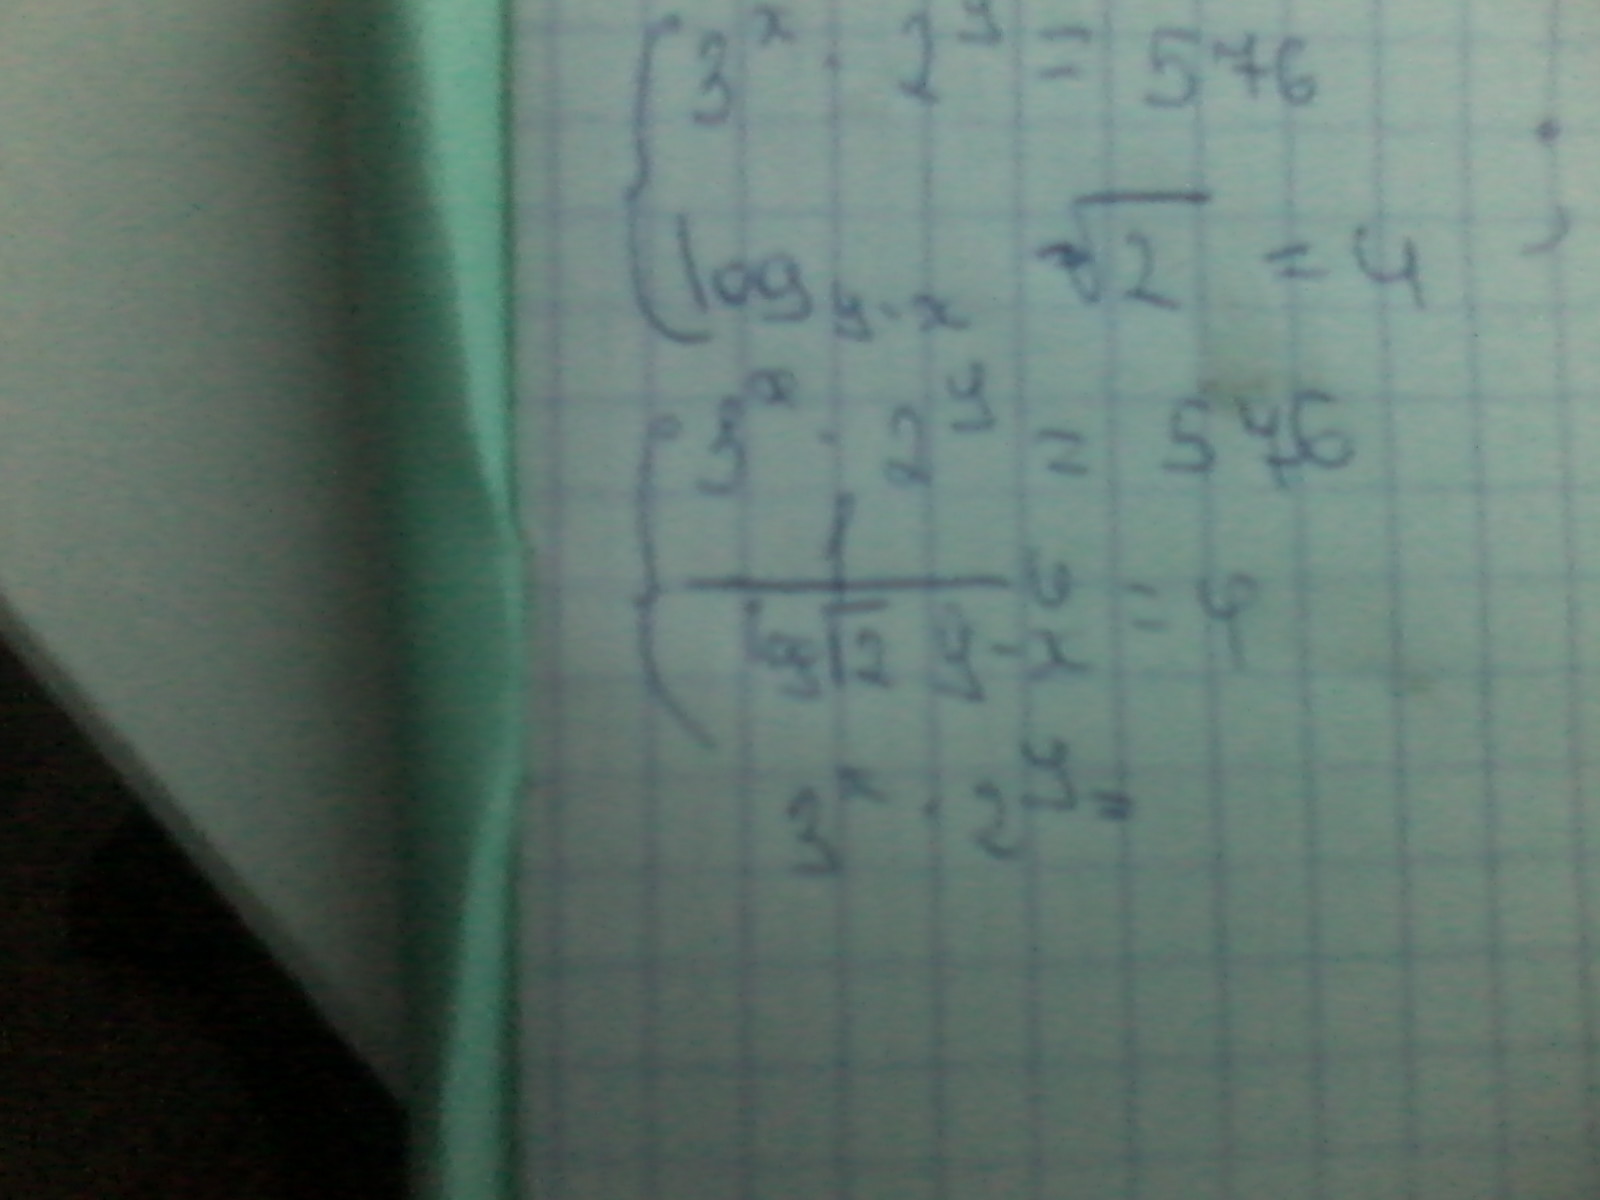 3^x · 2^y = 576
log_{y-x} √2 = 4
3^x · 2^y = 576
1
= 4
√2 y-x
3^x · 2^y =